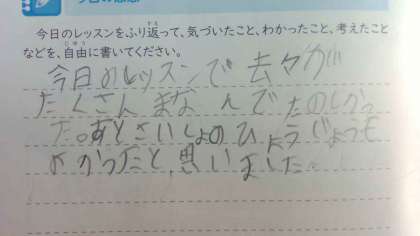 今日のレッスンをふり返って、気づいたこと、わかったこと、考えたこと
などを、自由に書いてください。
今日のレッスンで 去々が
たくさん まなんで たのしかっ
た。あとさいしょの ひょうじょうも
よかったと、思いました。